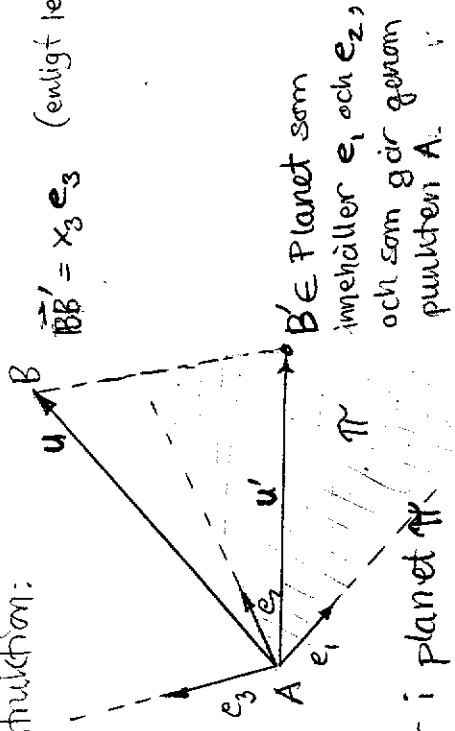 truktion:
B̅B̅' = x₃ e₃ (enligt le
B
u
e₃
e₂
A
u'
e₁
π
B' ∈ Planet som
innehåller e₁ och e₂,
och som går genom
punkten A.
r i planet π